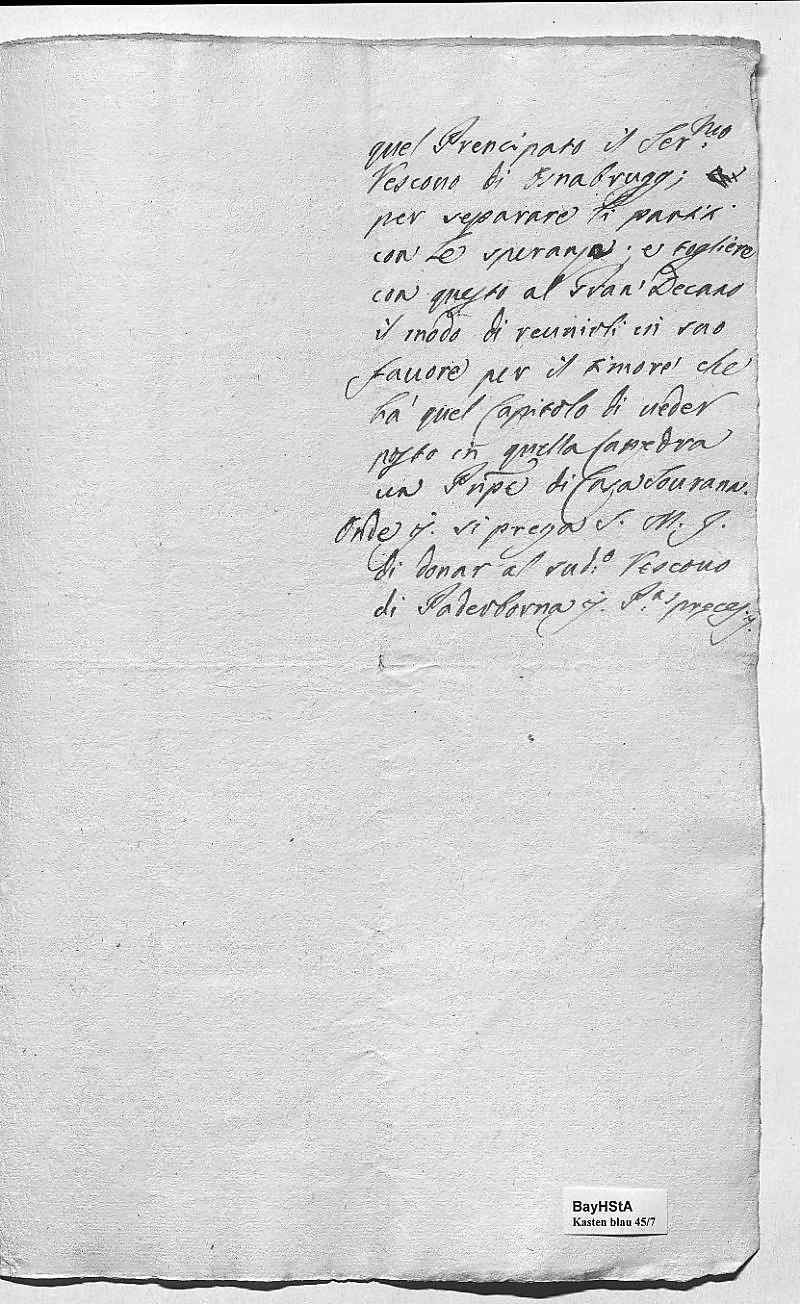 quel Prencipato il Ser.mo
Vescouo di Osnabrugg;
per separare li partiti
con le speranze; e togliere
con questo al Gran Decano
il modo di reunirli in suo
fauore per il timore che
hà quel Capitolo di ueder
posto in quella Cattedra
un Prīpe di Casa Sourana.
Onde si prega S. M. J.
di donar al sud.o Vescouo
di Paderborna P.as preces
BayHStA
Kasten blau 45/7